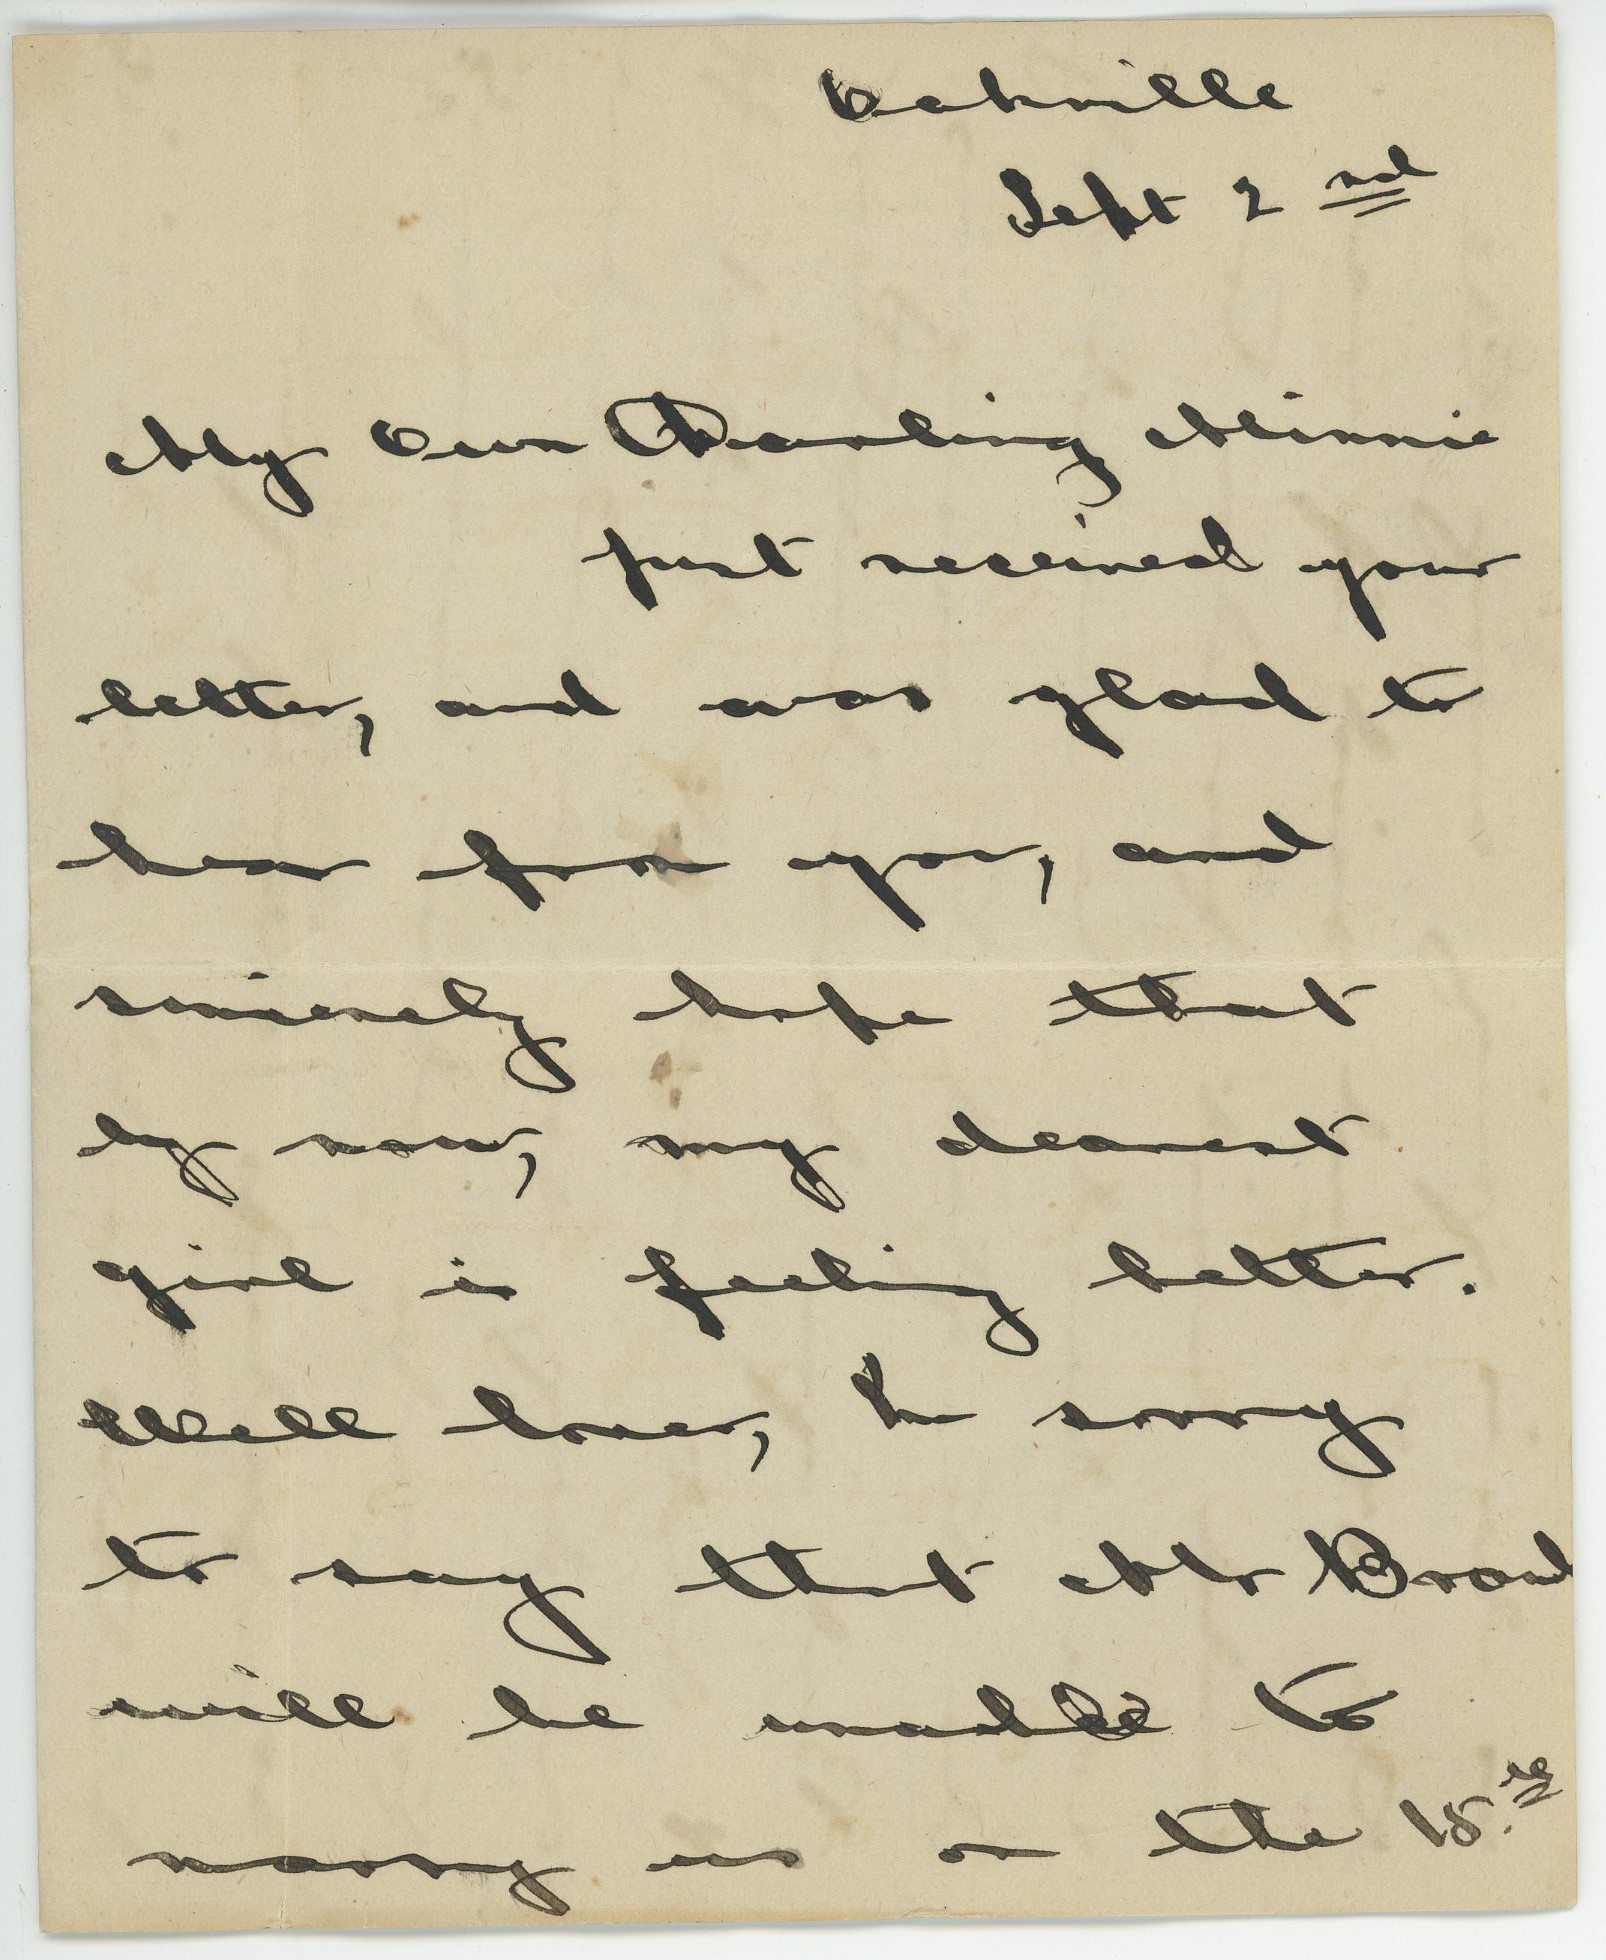 Oakville
Sept 2nd
My Own Darling Minnie
just received your
letter, and was glad to
hear from you, and
sincerely hope that
by now, my dearest
girl is feeling better.
Well lover, I'm sorry
to say that Mr Broad
will be unable to
marry us on the 15.th